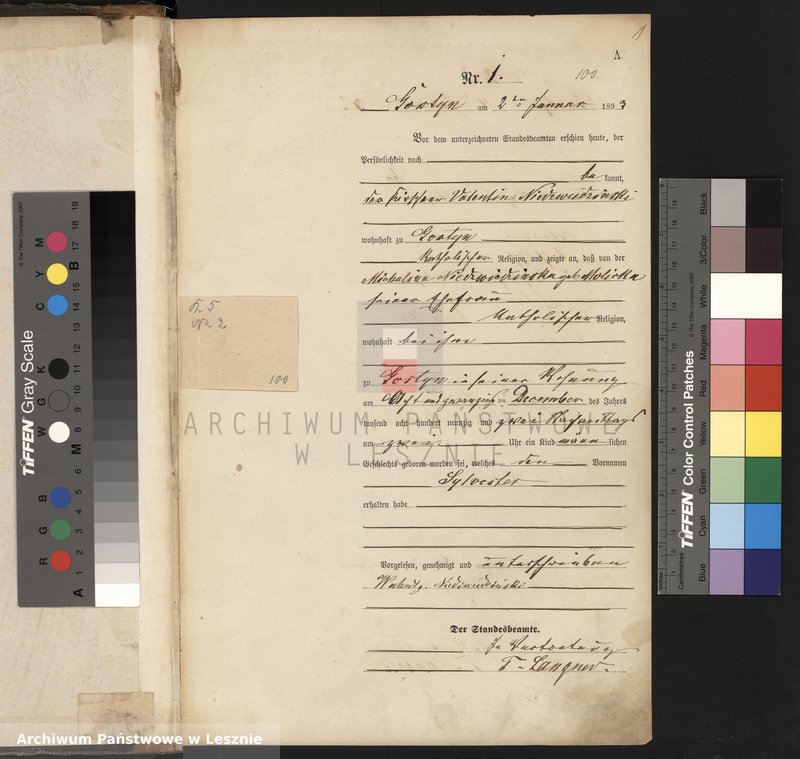 1
A
Nr. 1.
100.
Gostyn am 2 ten Januar 1893
Vor dem unterzeichneten Standesbeamten erschien heute, der
Persönlichkeit nach
be kannt,
der Valentin Niedzwiedzinski
wohnhaft zu Gostyn
katholischer Religion, und zeigte an, daß von der
Michalina Niedzwiedzinska geb.
seiner Ehefrau
katholischer Religion,
wohnhaft bei ihm
zu Gostyn in seiner Wohnung
am Acht und zwanzigsten December des Jahres
tausend acht hundert neunzig und zwei Nachmittags
um zwei Uhr ein Kind männ lichen
Geschlechts geboren worden sei, welches den Vornamen
Sylvester
erhalten habe
Vorgelesen, genehmigt und unterschrieben
Niedzwiedzinski
Der Standesbeamte.
In Vertretung
T. Langner.
No 2
100
ARCHIWUM PAŃSTWOWE
W LESZNIE
Archiwum Państwowe w Lesznie
TIFFEN Gray Scale
© The Tiffen Company, 2007
R G B W G K C Y M
A 1 2 3 4 5 6 M 8 9 10 11 12 13 14 15 B 17 18 19
TIFFEN Color Control Patches
© The Tiffen Company, 2007
Blue Cyan Green Yellow Red Magenta White 3/Color Black
Inches
Centimetres